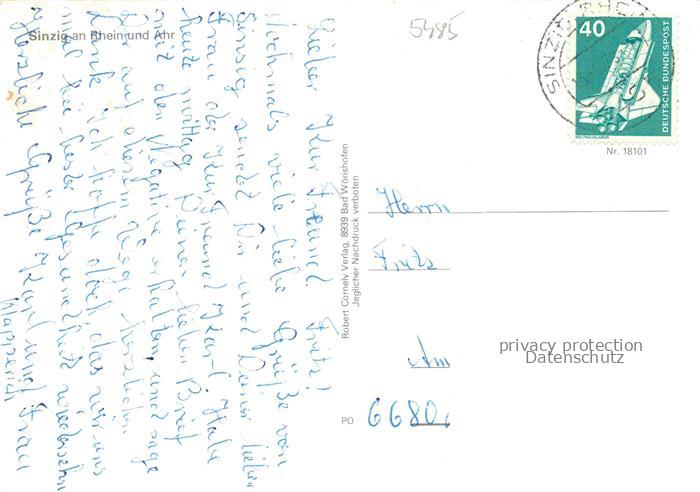 Sinzig an Rhein und Ahr
5485
SINZIG
40
DEUTSCHE BUNDESPOST
WELTRAUMLABOR
Nr. 18101
Lieber Kurfreund Fritz!
Nochmals viele liebe Grüße von
Sinzig sendet Dir und Deiner lieben
Frau der Kurfreund Karl. Habe
heute mittag Deinen lieben Brief
mit den Negative erhalten und sage
Dir auf diesem Wege herzlichen
Dank. Ich hoffe doch das wir uns
mal bei bester Gesundheit wiedersehn
Herzliche Grüße Karl und Frau
Robert Cornely Verlag, 8939 Bad Wörishofen
Jeglicher Nachdruck verboten
Herrn
Fritz
Am
PO
6680
privacy protection
Datenschutz